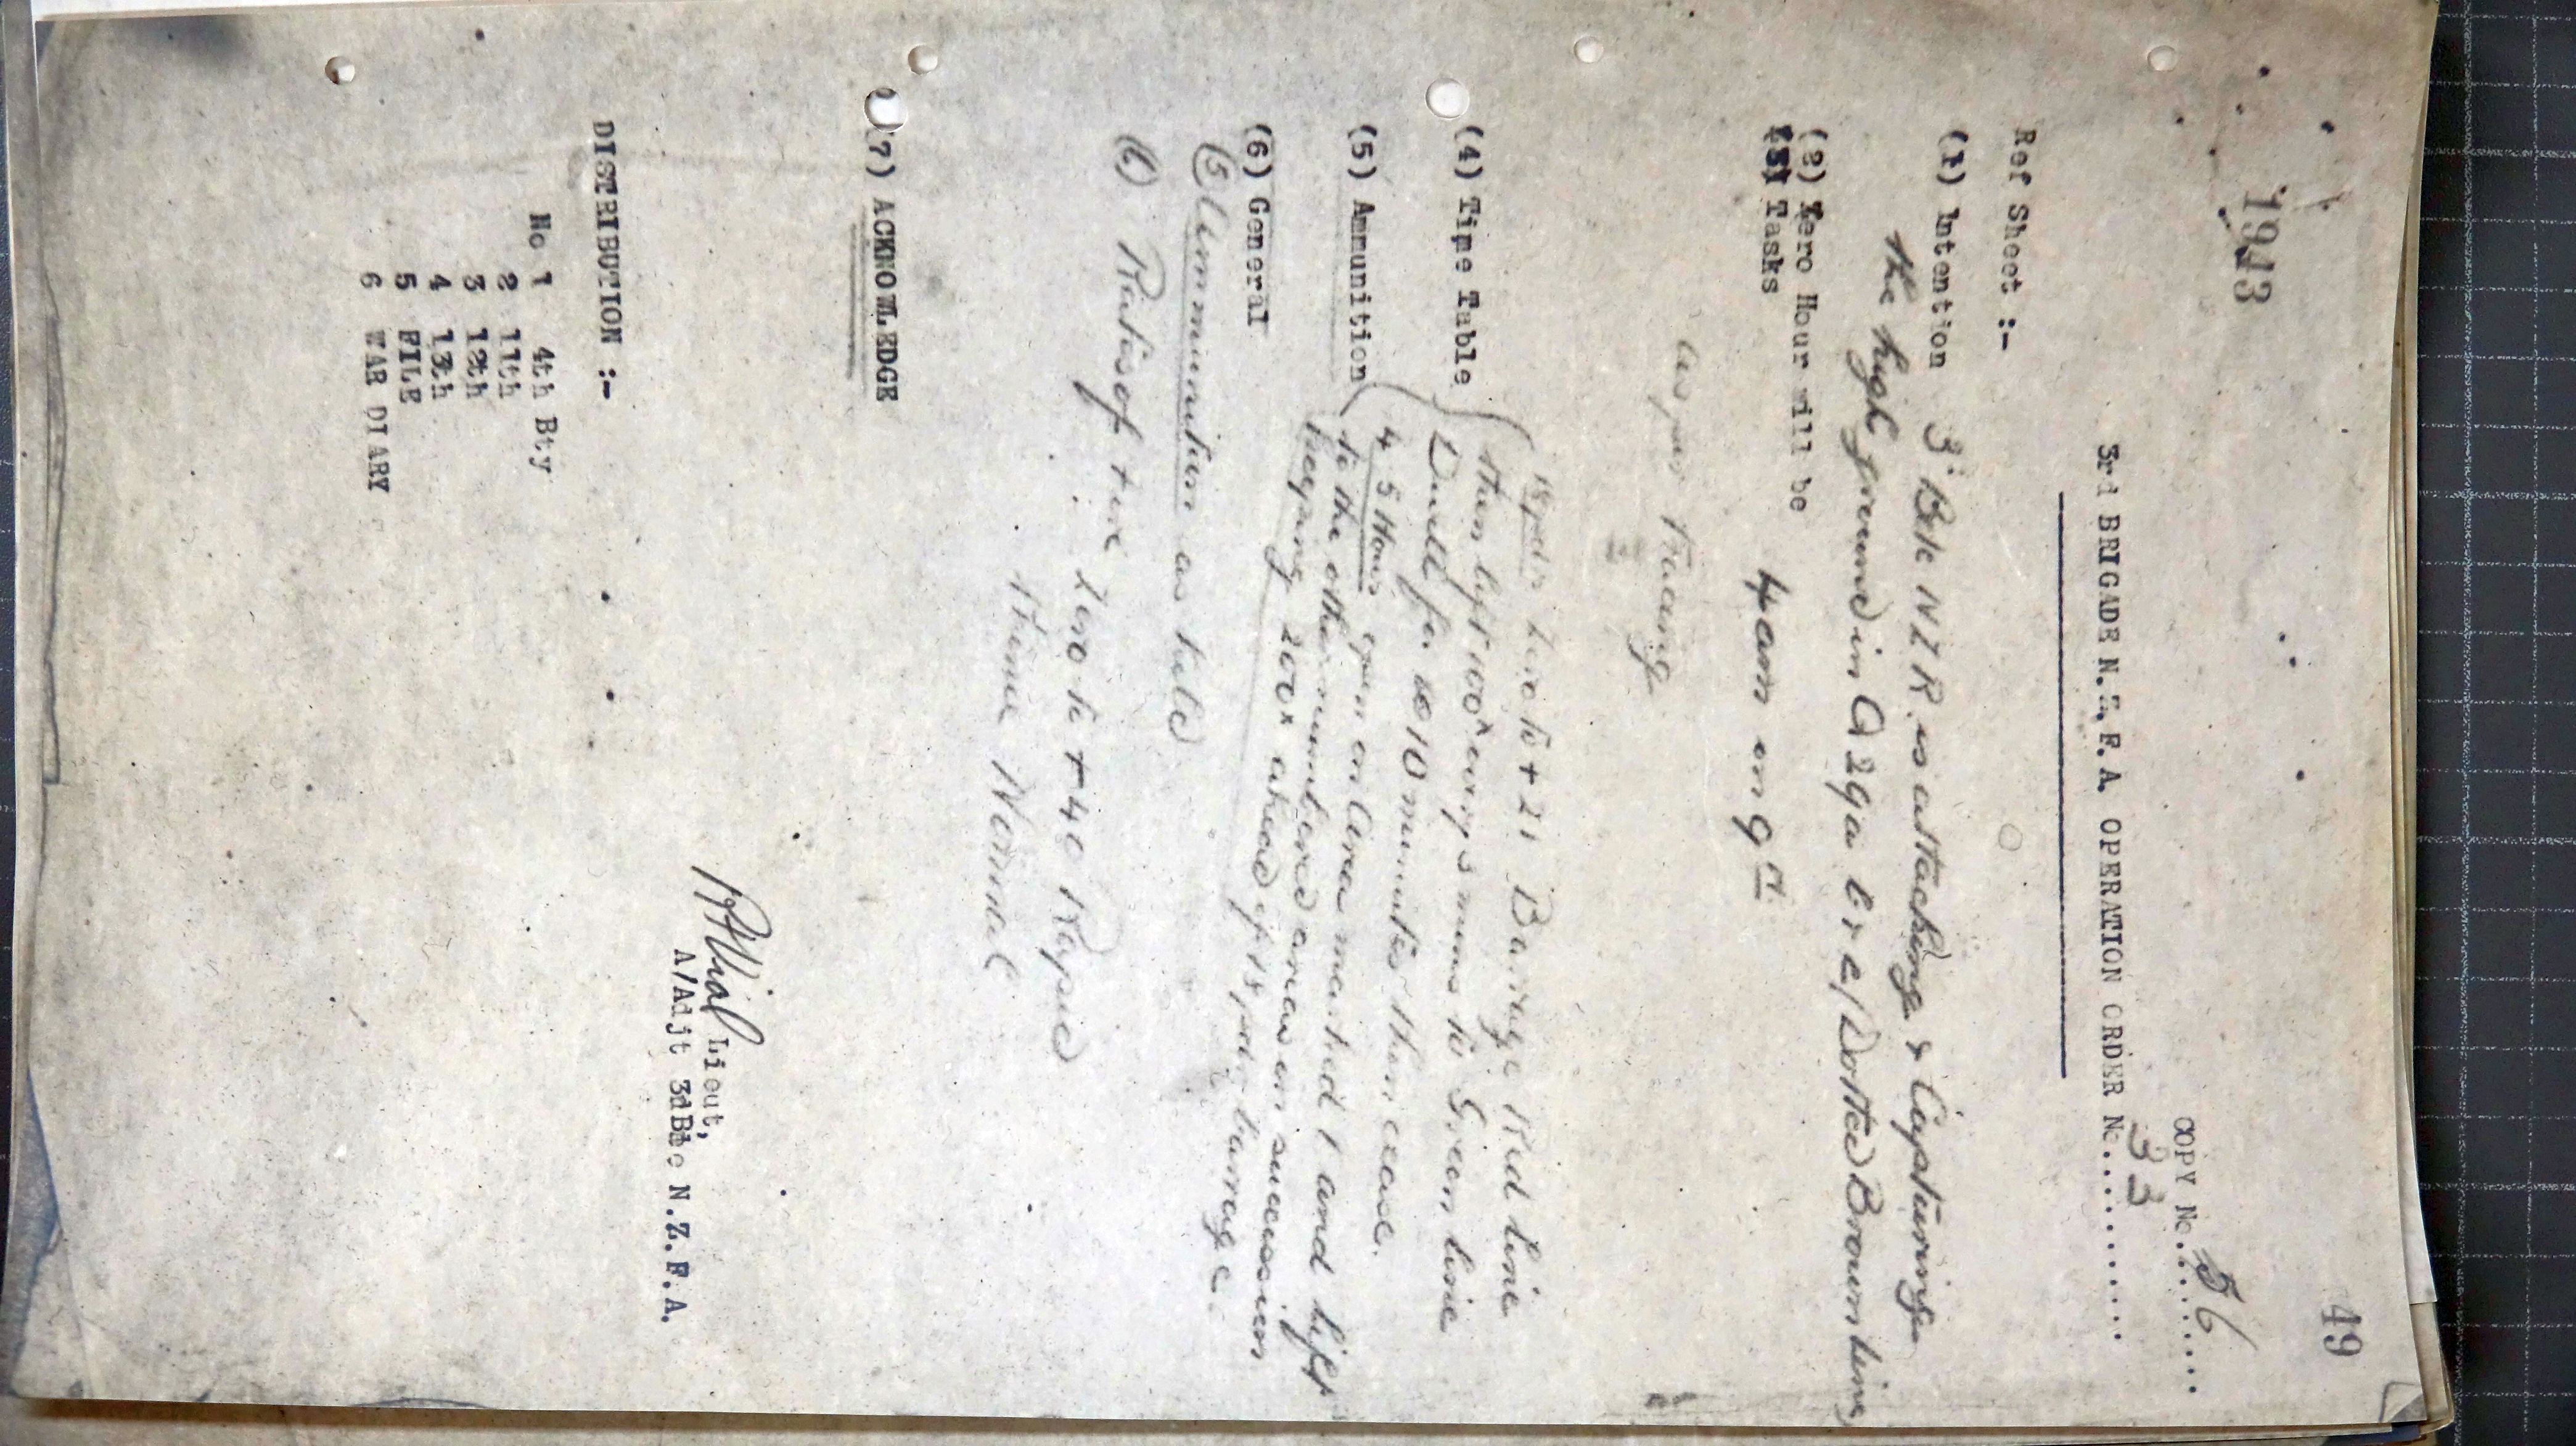 49
1943
COPY No. 6
3rd BRIGADE N.Z.F.A. OPERATION ORDER No. 33
Ref Sheet :-
(1) Intention 3rd Bde NZR is attacking & Capturing
the high ground in A29a b & c / Dotted Brown line
(2) Zero Hour will be 4am on 9th
(3) Tasks
as per Tracing
18 pdrs Zero to + 21 Barrage Red line
(4) Time Table then lift 100x every 3 mins to Green line
Dwell for 10 minutes then cease.
(5) Ammunition 4 5 Hows open on Area marked 1 and lift
to the other numbered areas in succession
keeping 200x ahead of 18 pdr barrage.
(6) General
(5) Ammunition as held
(6) Rates of fire Zero to + 40 Rapid
Thence Normal
(7) ACKNOWLEDGE
Lieut,
A/Adjt 3d Bde N.Z.F.A.
DISTRIBUTION :-
No 1 4th Bty
2 11th
3 12th
4 13th
5 FILE
6 WAR DIARY